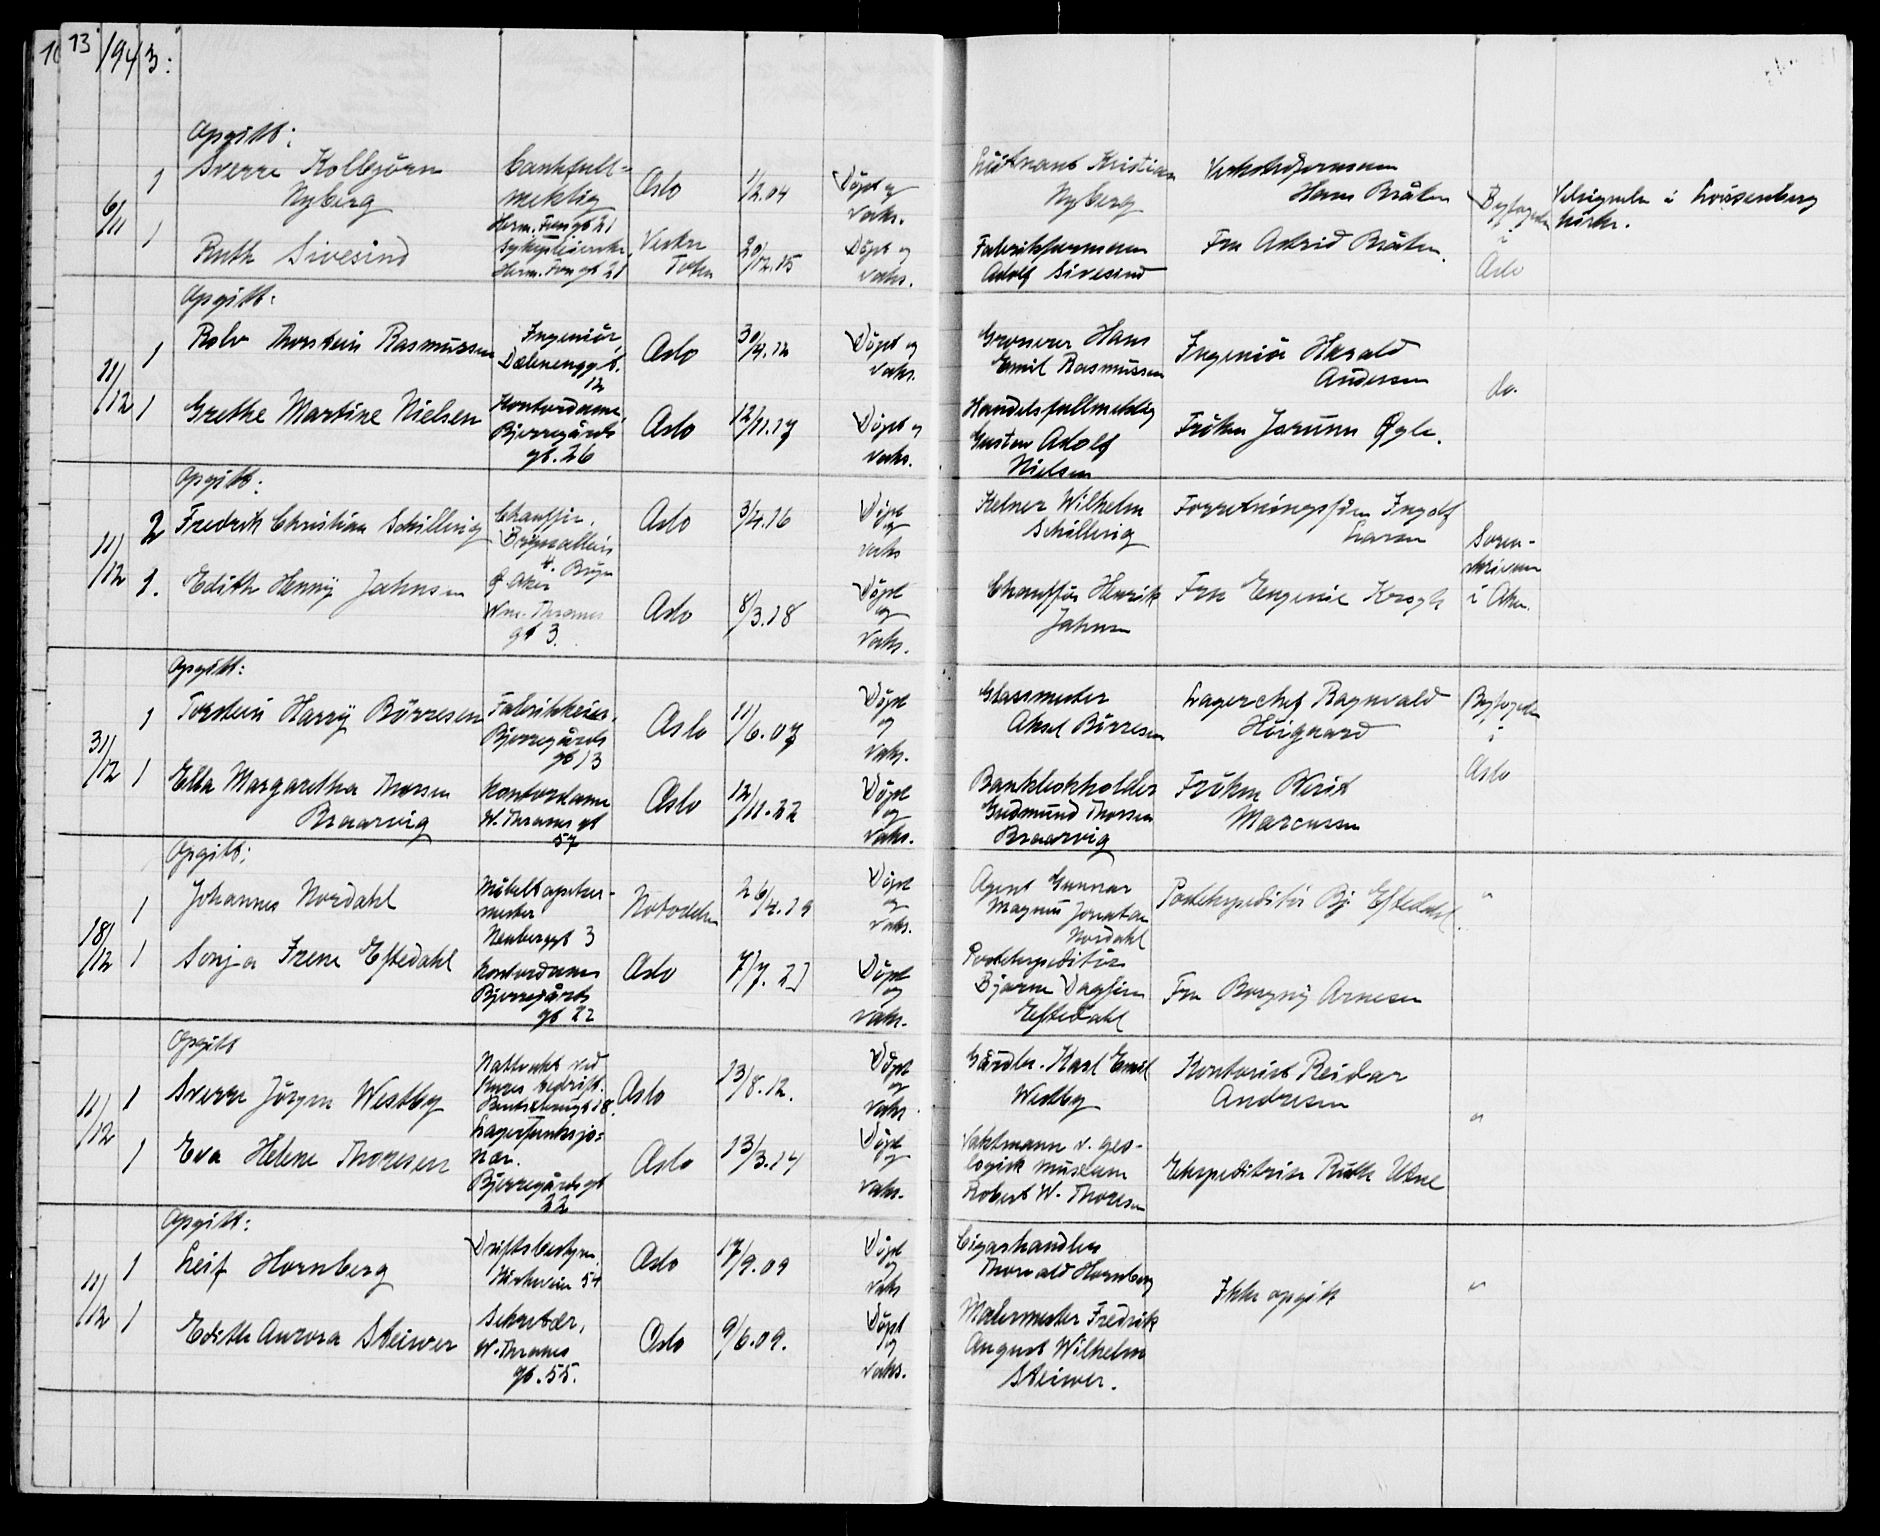 13
1943:
Opgitt:
6/11
1 Sverre Kolbjørn Nyberg
bankfull-
mektig
Herm. Foss gt 21
Oslo
1/2.04
Döpt og
vaks.
Löitnant Kristian
Nyberg
Verkstedformann
Hans Bråten
Byfogden
i
Oslo
Velsignelse i Lovisenberg
kirke.
1 Ruth Sivesind
Sykepleierske
Herm. Foss gt 21
Vestre
Toten
20/12.15
Döpt og
vaks.
Fabrikformann
Adolf Sivesind
Fru Astrid Bråten.
Opgitt:
11/12
1 Rolv Thorstein Rasmussen
Ingeniör
Dælenenggt.
12
Oslo
30/4.12
Döpt og
vaks.
Grosserer Hans
Emil Rasmussen
Ingeniör Harald
Andersen
do.
1 Grethe Martine Nielsen
Kontordame,
Bjerregårds
gt. 26
Oslo
12/11.17
Döpt og
vaks.
Handelsfullmektig
Gustav Adolf
Nielsen
Fröken Jorunn Øgle.
Opgitt:
11/12
2 Fredrik Christian Schilling
Chauffür,
Oslo
3/4.16
Döpt
og
vaks
Kelner Wilhelm
Schilling
Forretningsförer Ingolf
Larsen
Soren-
skriveren
i Aker.
1. Edith Henny Jahnsen
Wm. Thranes
gt 3.
Oslo
8/3.18
Döpt
og
vaks.
Chauffür Henrik
Jahnsen
Fru Eugenie Krogh
Opgitt:
31/12
1 Torstein Harry Börresen
Fabrikkeier,
Bjerregårds
gt 13
Oslo
11/6.07
Döpt
og
vaks.
Glassmester
Aksel Börresen
Lagerchef Ragnvald
Höigaard
Byfogden
i
Oslo
1 Ella Margaretha Thorsen
Braarvig
Kontordame
W. Thranes gt
57
Oslo
12/11.22
Döpt
og
vaks.
Bankbokholder
Gudmund Thorsen
Braarvig
Fröken Berit
Marcussen
Opgitt:
18/12
1 Johannes Nordahl
Möbeltapetser-
mester
Neuberggt 3
Notodden
26/4.19
Döpt
og
vaks.
Agent Gunnar
Magnus Jonatan
Nordahl
Postekspeditör Bj. Eftedahl.
"
1 Sonja Irene Eftedahl
Kontordame
Bjerregårds
gt 22
Oslo
7/7.21
Döpt
og
vaks.
Postekspeditör
Bjarne Dagfinn
Eftedahl
Fru Borgny Arnesen
Opgitt
11/12
1 Sverre Jörgen Westby
Nattvakt ved
bedrift.
Bentsebrugt 18.
Oslo
13/8.12.
Döpt
og
vaks.
Gårdbr. Karl Emil
Westby
Kontorist Reidar
Andresen
"
1 Eva Helene Thoresen
Lagerfunksjo-
nær.
Bjerregårdsgt
22
Oslo
13/3.14
Döpt
og
vaks.
Vaktmann v. geo-
logisk museum
Robert W. Thoresen
Ekspeditrise Ruth Utne
Opgitt:
11/12
1 Leif Hornberg
Driftsbestyrer
Kirkeveien 54
Oslo
17/9.09
Döpt
og
vaks
Cigarhandler
Thorvald Hornberg
Ikke opgitt
"
1 Edith Aurora Steiwer
Sekretær,
W. Thranes
gt. 55.
Oslo
9/6.09.
Döpt
og
vaks.
Malermester Fredrik
August Wilhelm
Steiwer.